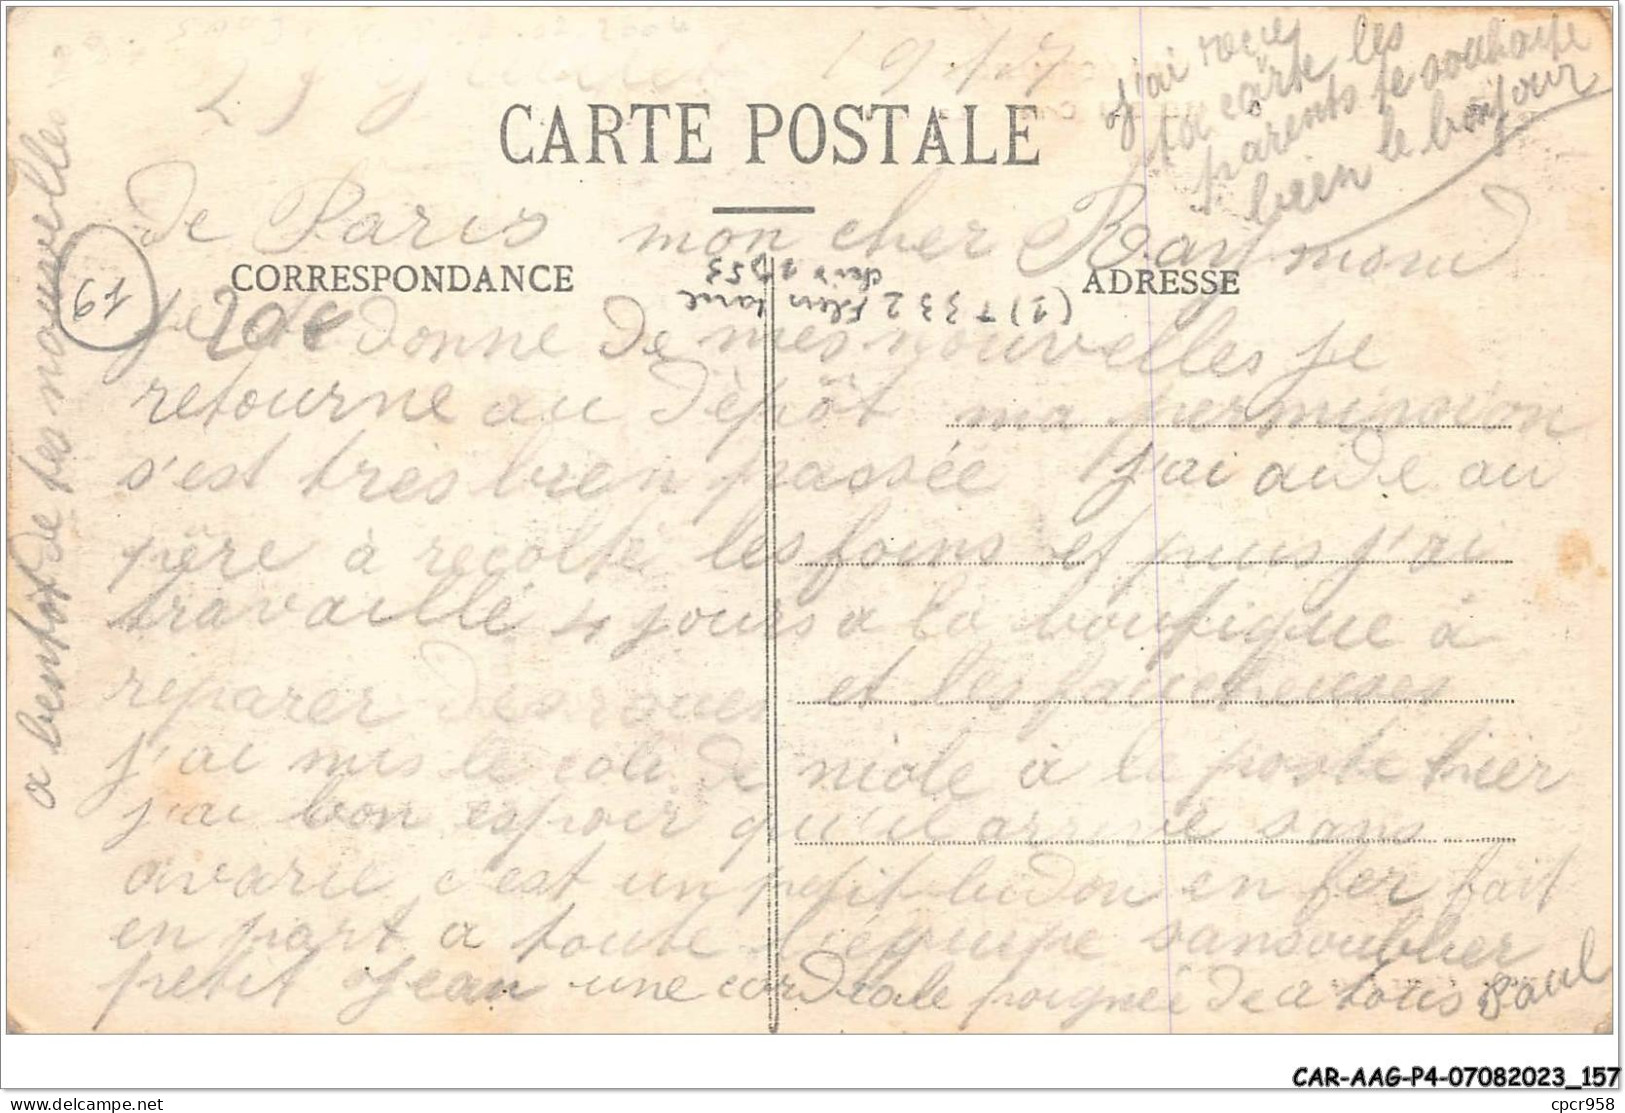 29 juillet 1917
CARTE POSTALE
j'ai reçue
ta carte les
parents te souhaite
bien le bonjour
de Paris mon cher Raymond
CORRESPONDANCE
ADRESSE
61
20e
je te donne de mes nouvelles je
retourne au dèpôt ma permission
s'est très bien passée j'ai aidé au
père à recolté les foins et puis j'ai
travaillé 4 jours a la boutique à
réparer des roues et les faucheuses
j'ai mis le coli de niole à la poste hier
j'ai bon espoir qu'il arrive sans
avarie c'est un petit bidon en fer fait
en part a toute l'équipe sans oublier
petit Jean une cordiale poignée de a tous Paul
a bentot de tes nouvelles
CAR-AAG-P4-07082023_157
www.delcampe.net
cpcr958